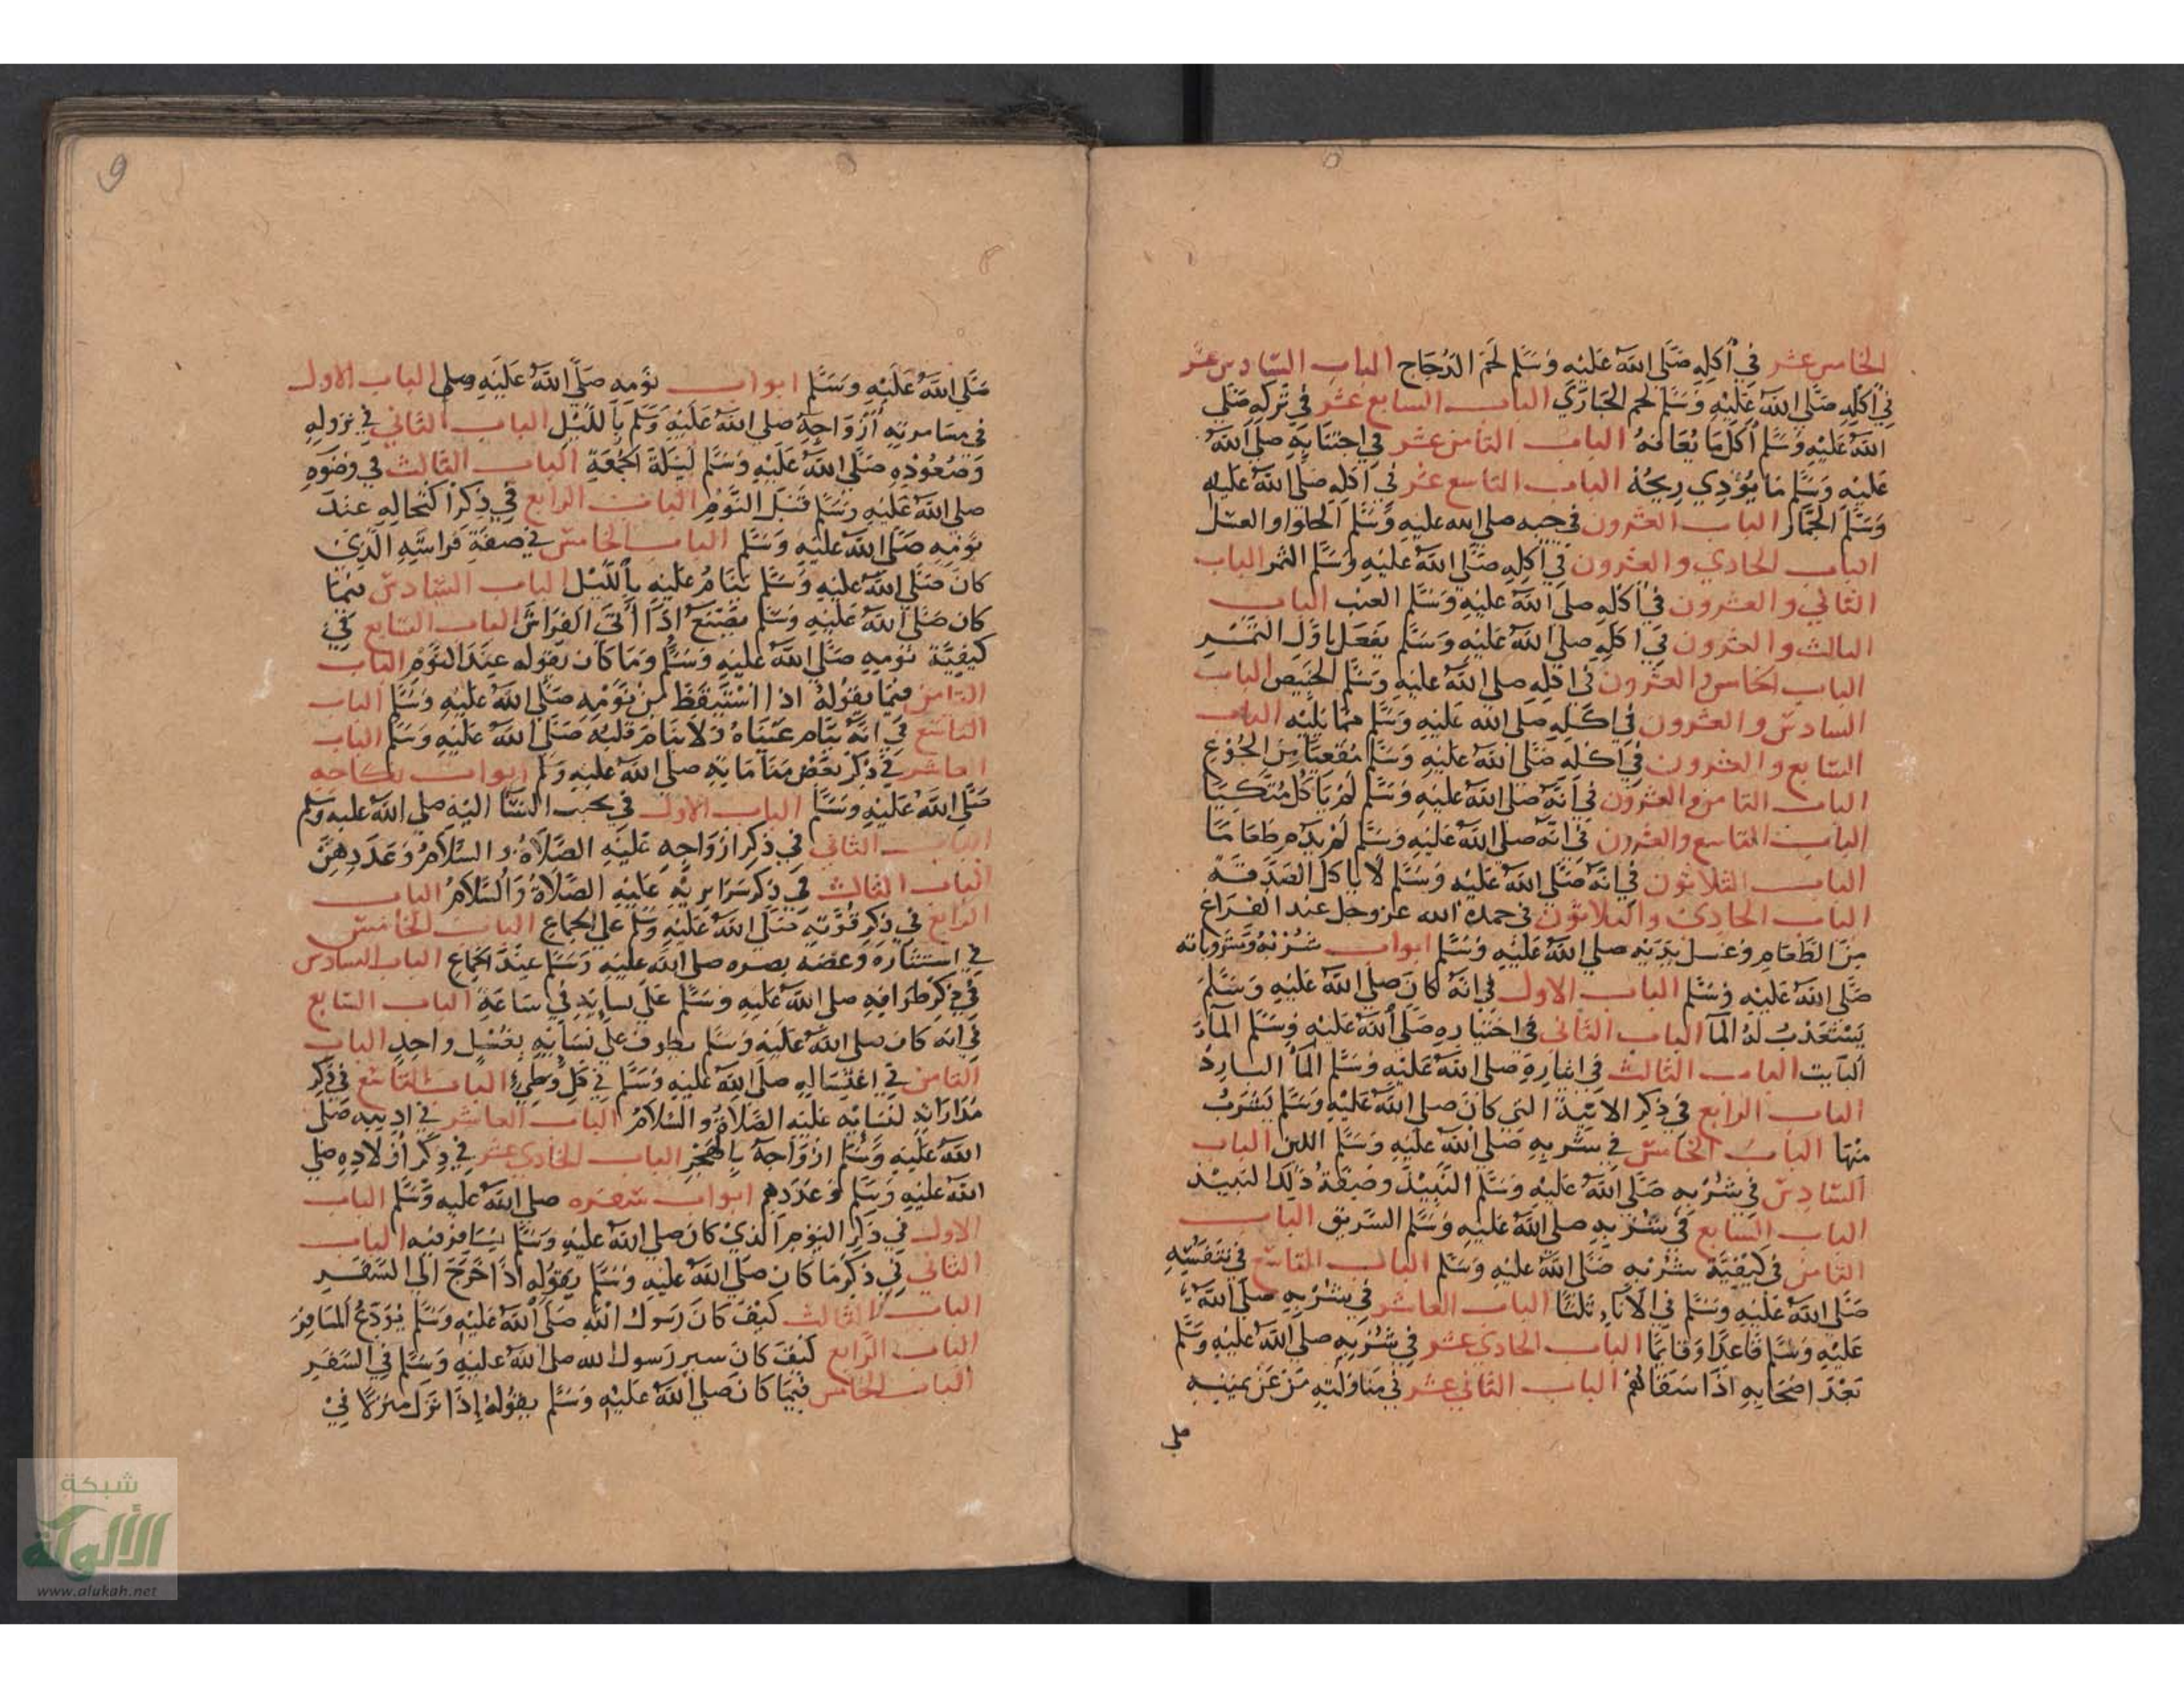 الخامس عشر في أكله صلى الله عليه وسلم لحم الدجاج الباب السادس عشر
في أكله صلى الله عليه وسلم لحم الحبارى الباب السابع عشر في تركه صلى
الله عليه وسلم أكل ما يعافه الباب الثامن عشر في اجتنابه صلى الله
عليه وسلم ما يؤذي ريحه الباب التاسع عشر في اكله صلى الله عليه
وسلم الجمار الباب العشرون في حبه صلى الله عليه وسلم الحلوا والعسل
الباب الحادي والعشرون في أكله صلى الله عليه وسلم التمر الباب
الثاني والعشرون في أكله صلى الله عليه وسلم العنب الباب
الثالث والعشرون في اكله صلى الله عليه وسلم يفعل باول الثمر
الباب الخامس والعشرون في اكله صلى الله عليه وسلم الخبيص الباب
السادس والعشرون في اكله صلى الله عليه وسلم مما يليه الباب
السابع والعشرون في اكله صلى الله عليه وسلم مقعيا من الجوع
الباب الثامن والعشرون في أنه صلى الله عليه وسلم لم يأكل متكيا
الباب التاسع والعشرون في انه صلى الله عليه وسلم لم يذم طعاما
الباب الثلاثون في انه صلى الله عليه وسلم لا يأكل الصدقة
الباب الحادي والثلاثون في حمده الله عز وجل عند الفراغ
من الطعام وغسل يديه صلى الله عليه وسلم ابواب شربه ومشروباته
صلى الله عليه وسلم الباب الاول في انه كان صلى الله عليه وسلم
يستعذب له الما الباب الثاني في اختياره صلى الله عليه وسلم الماء
البايت الباب الثالث في ايثاره صلى الله عليه وسلم الما البارد
الباب الرابع في ذكر الانية التي كان صلى الله عليه وسلم يشرب
منها الباب الخامس في شربه صلى الله عليه وسلم اللبن الباب
السادس في شربه صلى الله عليه وسلم النبيذ وصفة ذلك النبيذ
الباب السابع في شربه صلى الله عليه وسلم السويق الباب
الثامن في كيفية شربه صلى الله عليه وسلم الباب التاسع في تنفسه
صلى الله عليه وسلم في الاناء ثلثا الباب العاشر في شربه صلى الله
عليه وسلم قاعدا وقايما الباب الحادي عشر في شربه صلى الله عليه وسلم
بعد اصحابه اذا سقاهم الباب الثاني عشر في مناولته من عن يمينه
صلى
9
صلى الله عليه وسلم ابواب نومه صلى الله عليه وسلم الباب الاول
في مسامرته أزواجه صلى الله عليه وسلم بالليل الباب الثاني في نزوله
وصعوده صلى الله عليه وسلم ليلة الجمعة الباب الثالث في وضوه
صلى الله عليه وسلم قبل النوم الباب الرابع في ذكر اكتحاله عند
نومه صلى الله عليه وسلم الباب الخامس في صفة فراشه الذي
كان صلى الله عليه وسلم ينام عليه بالليل الباب السادس فيما
كان صلى الله عليه وسلم يصنع اذا أتى الفراش الباب السابع في
كيفية نومه صلى الله عليه وسلم وما كان يقوله عند النوم الباب
الثامن فيما يقوله اذا استيقظ من نومه صلى الله عليه وسلم الباب
التاسع في انه تنام عيناه ولا ينام قلبه صلى الله عليه وسلم الباب
العاشر في ذكر بعض مناماته صلى الله عليه وسلم ابواب نكاحه
صلى الله عليه وسلم الباب الاول في تحبب النسا اليه صلى الله عليه وسلم
الباب الثاني في ذكر ازواجه عليه الصلاة والسلام وعددهن
الباب الثالث في ذكر سراريه عليه الصلاة والسلام الباب
الرابع في ذكر قوته صلى الله عليه وسلم على الجماع الباب الخامس
في استتاره وغضه بصره صلى الله عليه وسلم عند الجماع الباب السادس
في ذكر طوافه صلى الله عليه وسلم على نسايه في ساعة الباب السابع
في انه كان صلى الله عليه وسلم يطوف على نسايه بغسل واحد الباب
الثامن في اغتساله صلى الله عليه وسلم في كل وطيء الباب التاسع في ذكر
مداراته لنسايه عليه الصلاة والسلام الباب العاشر في اديبه صلى
الله عليه وسلم ازواجه بالهجر الباب الحادي عشر في ذكر أولاده صلى
الله عليه وسلم وعددهم ابواب سفره صلى الله عليه وسلم الباب
الاول في ذكر اليوم الذي كان صلى الله عليه وسلم يسافر فيه الباب
الثاني في ذكر ما كان صلى الله عليه وسلم يقوله اذا خرج الى السفر
الباب الثالث كيف كان رسول الله صلى الله عليه وسلم يودع المسافر
الباب الرابع كيف كان سير رسول الله صلى الله عليه وسلم في السفر
الباب الخامس فيما كان صلى الله عليه وسلم يقوله إذا نزل منزلا في
شبكة
الألوكة
www.alukah.net